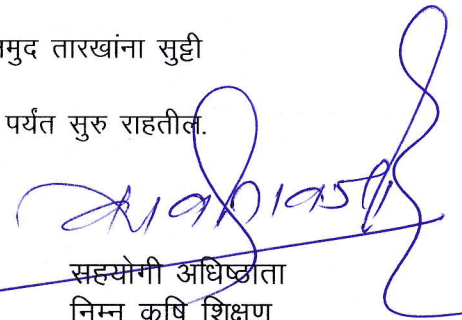 नमुद तारखांना सुट्टी
पर्यंत सुरु राहतील.
सहयोगी अधिष्ठाता
निम्न कृषि शिक्षण